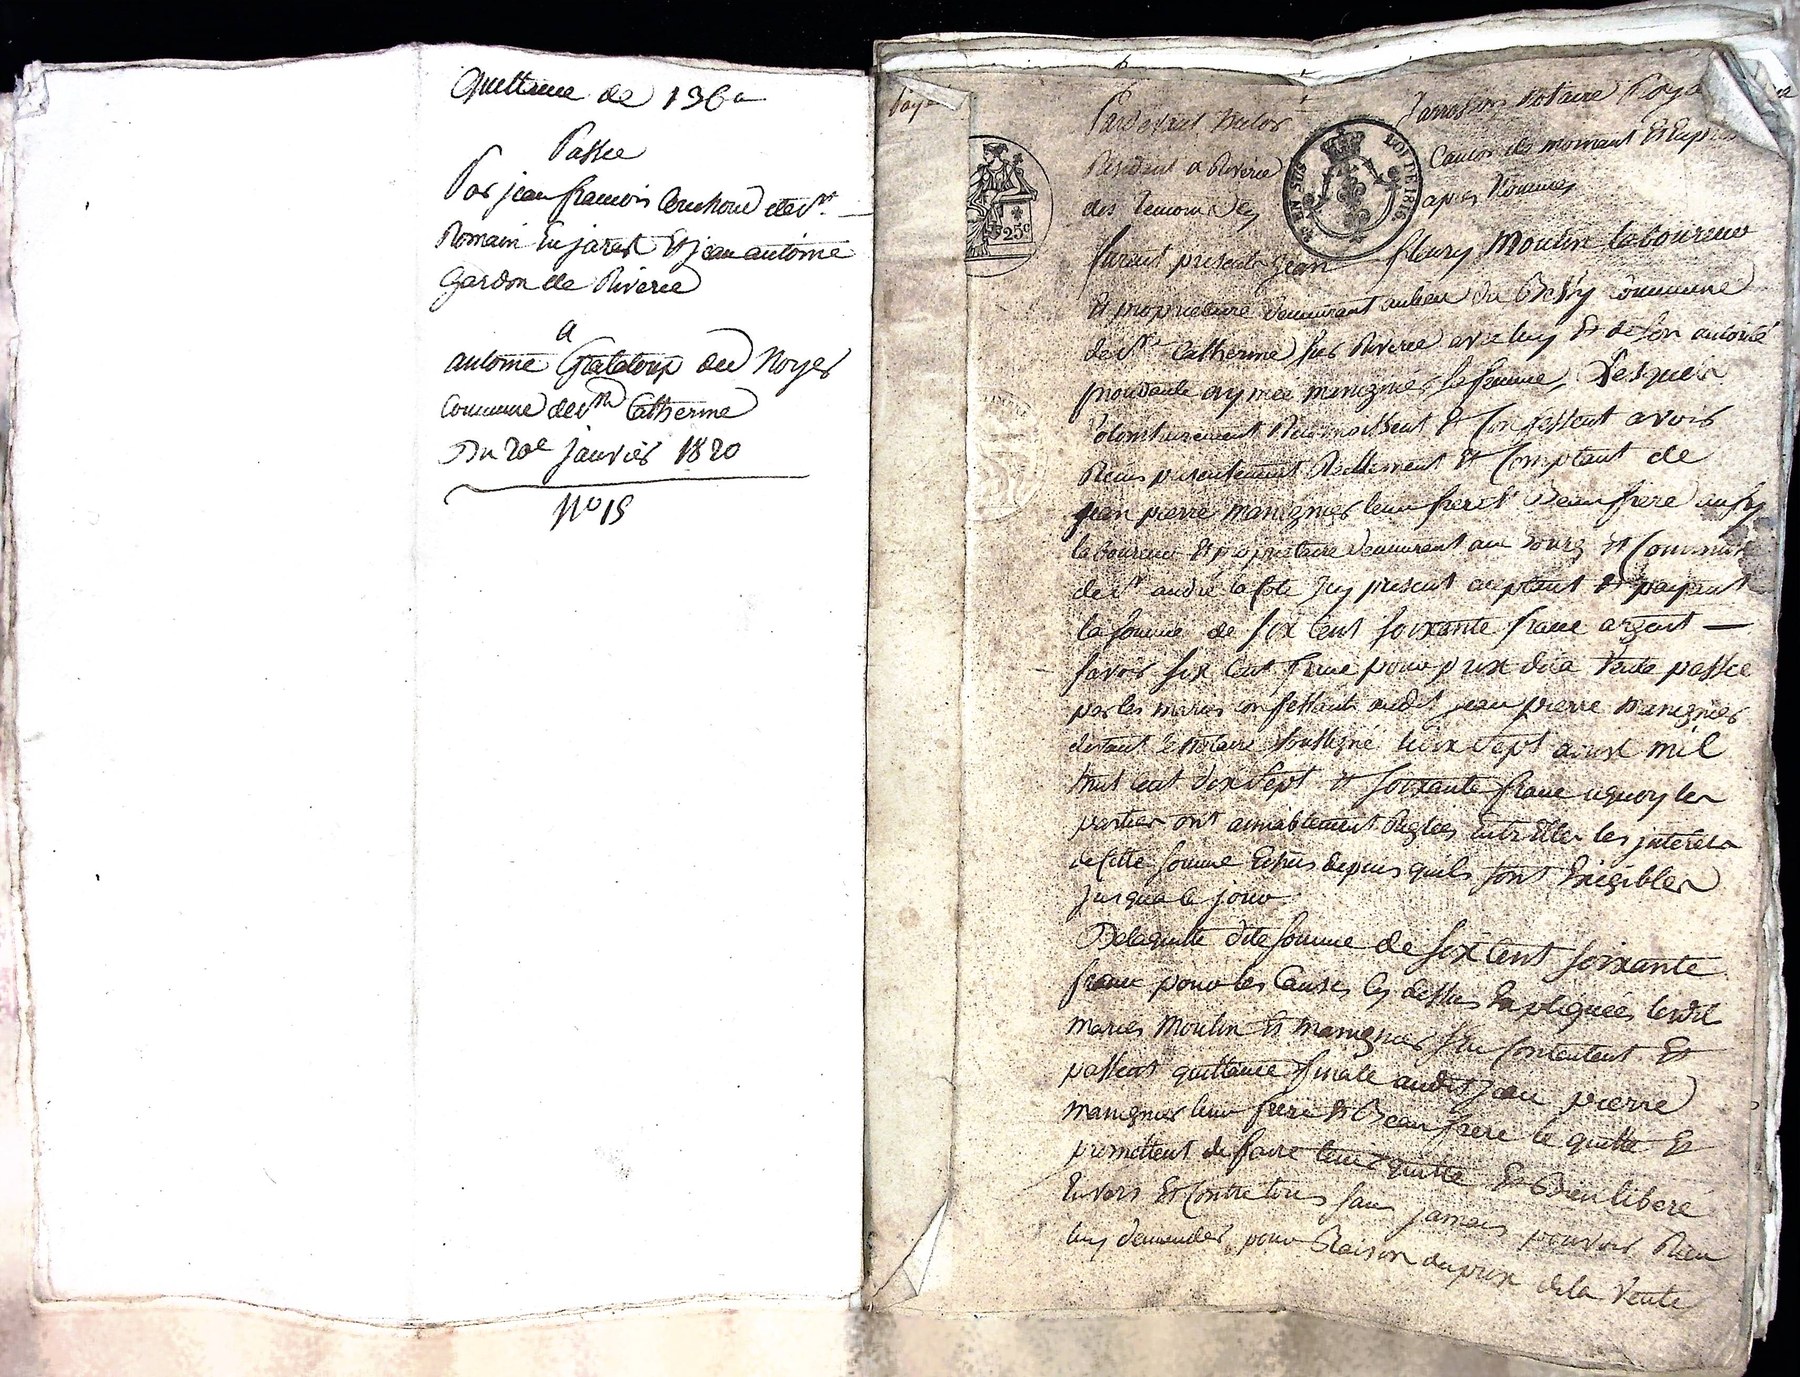 Quittance de 136 a
Passée
Par jean francois Couchoud de St
Romain En jarest Et jean antoine
Gardon de Riverie
a
antoine Grataloup du Noyer
Commune de Ste Catherine
Du 20e janvier 1820
No 15
Pardevant notaire Royal
EN SUS LOI DE 1816
Resident a Riverie Canton de mornant Et En presence
des temoins Cy apres nommés
25c
furent presents jean fleury Moulin laboureur
Et proprietaire demeurant au lieu du Commune
de Ste Catherine sur Riverie avec luy Et de Son autorité
procedante aymée manignier sa femme, Lesquels
volontairement Reconnoissent Et Confessent avoir
Recus presentement Reellement Et Comptant de
jean pierre manignier leur frere Et Beaufrere aussy
laboureur Et proprietaire demeurant au Bourg Et Commune
de St andré la Cote Icy present aceptant Et payant
la somme de six Cent soixante franc argent
savoir six Cent franc pour prix de la Vente passée
par les maries confessants audit jean pierre manignier
devant le Notaire soussigné le dix sept aoust mil
huit cent dix sept Et soixante franc aquoy les
parties ont amiablement Reglées Entr'Elles les interets
de Cette somme Echus depuis quils sont Exigibles
jusqua Ce jour
De laquelle dite somme de six Cent soixante
franc pour les Causes Cy dessus Expliquées lesdit
maries Moulin Et manignier s'En Contentent Et
passent quittance finale audit jean pierre
manignier leur frere Et Beaufrere le quitte Et
promettent de faire tenir quitte Et Bien liberé
Envers Et Contre tous sans jamais pouvoir Rien
luy demander pour Raison du prix de la Vente